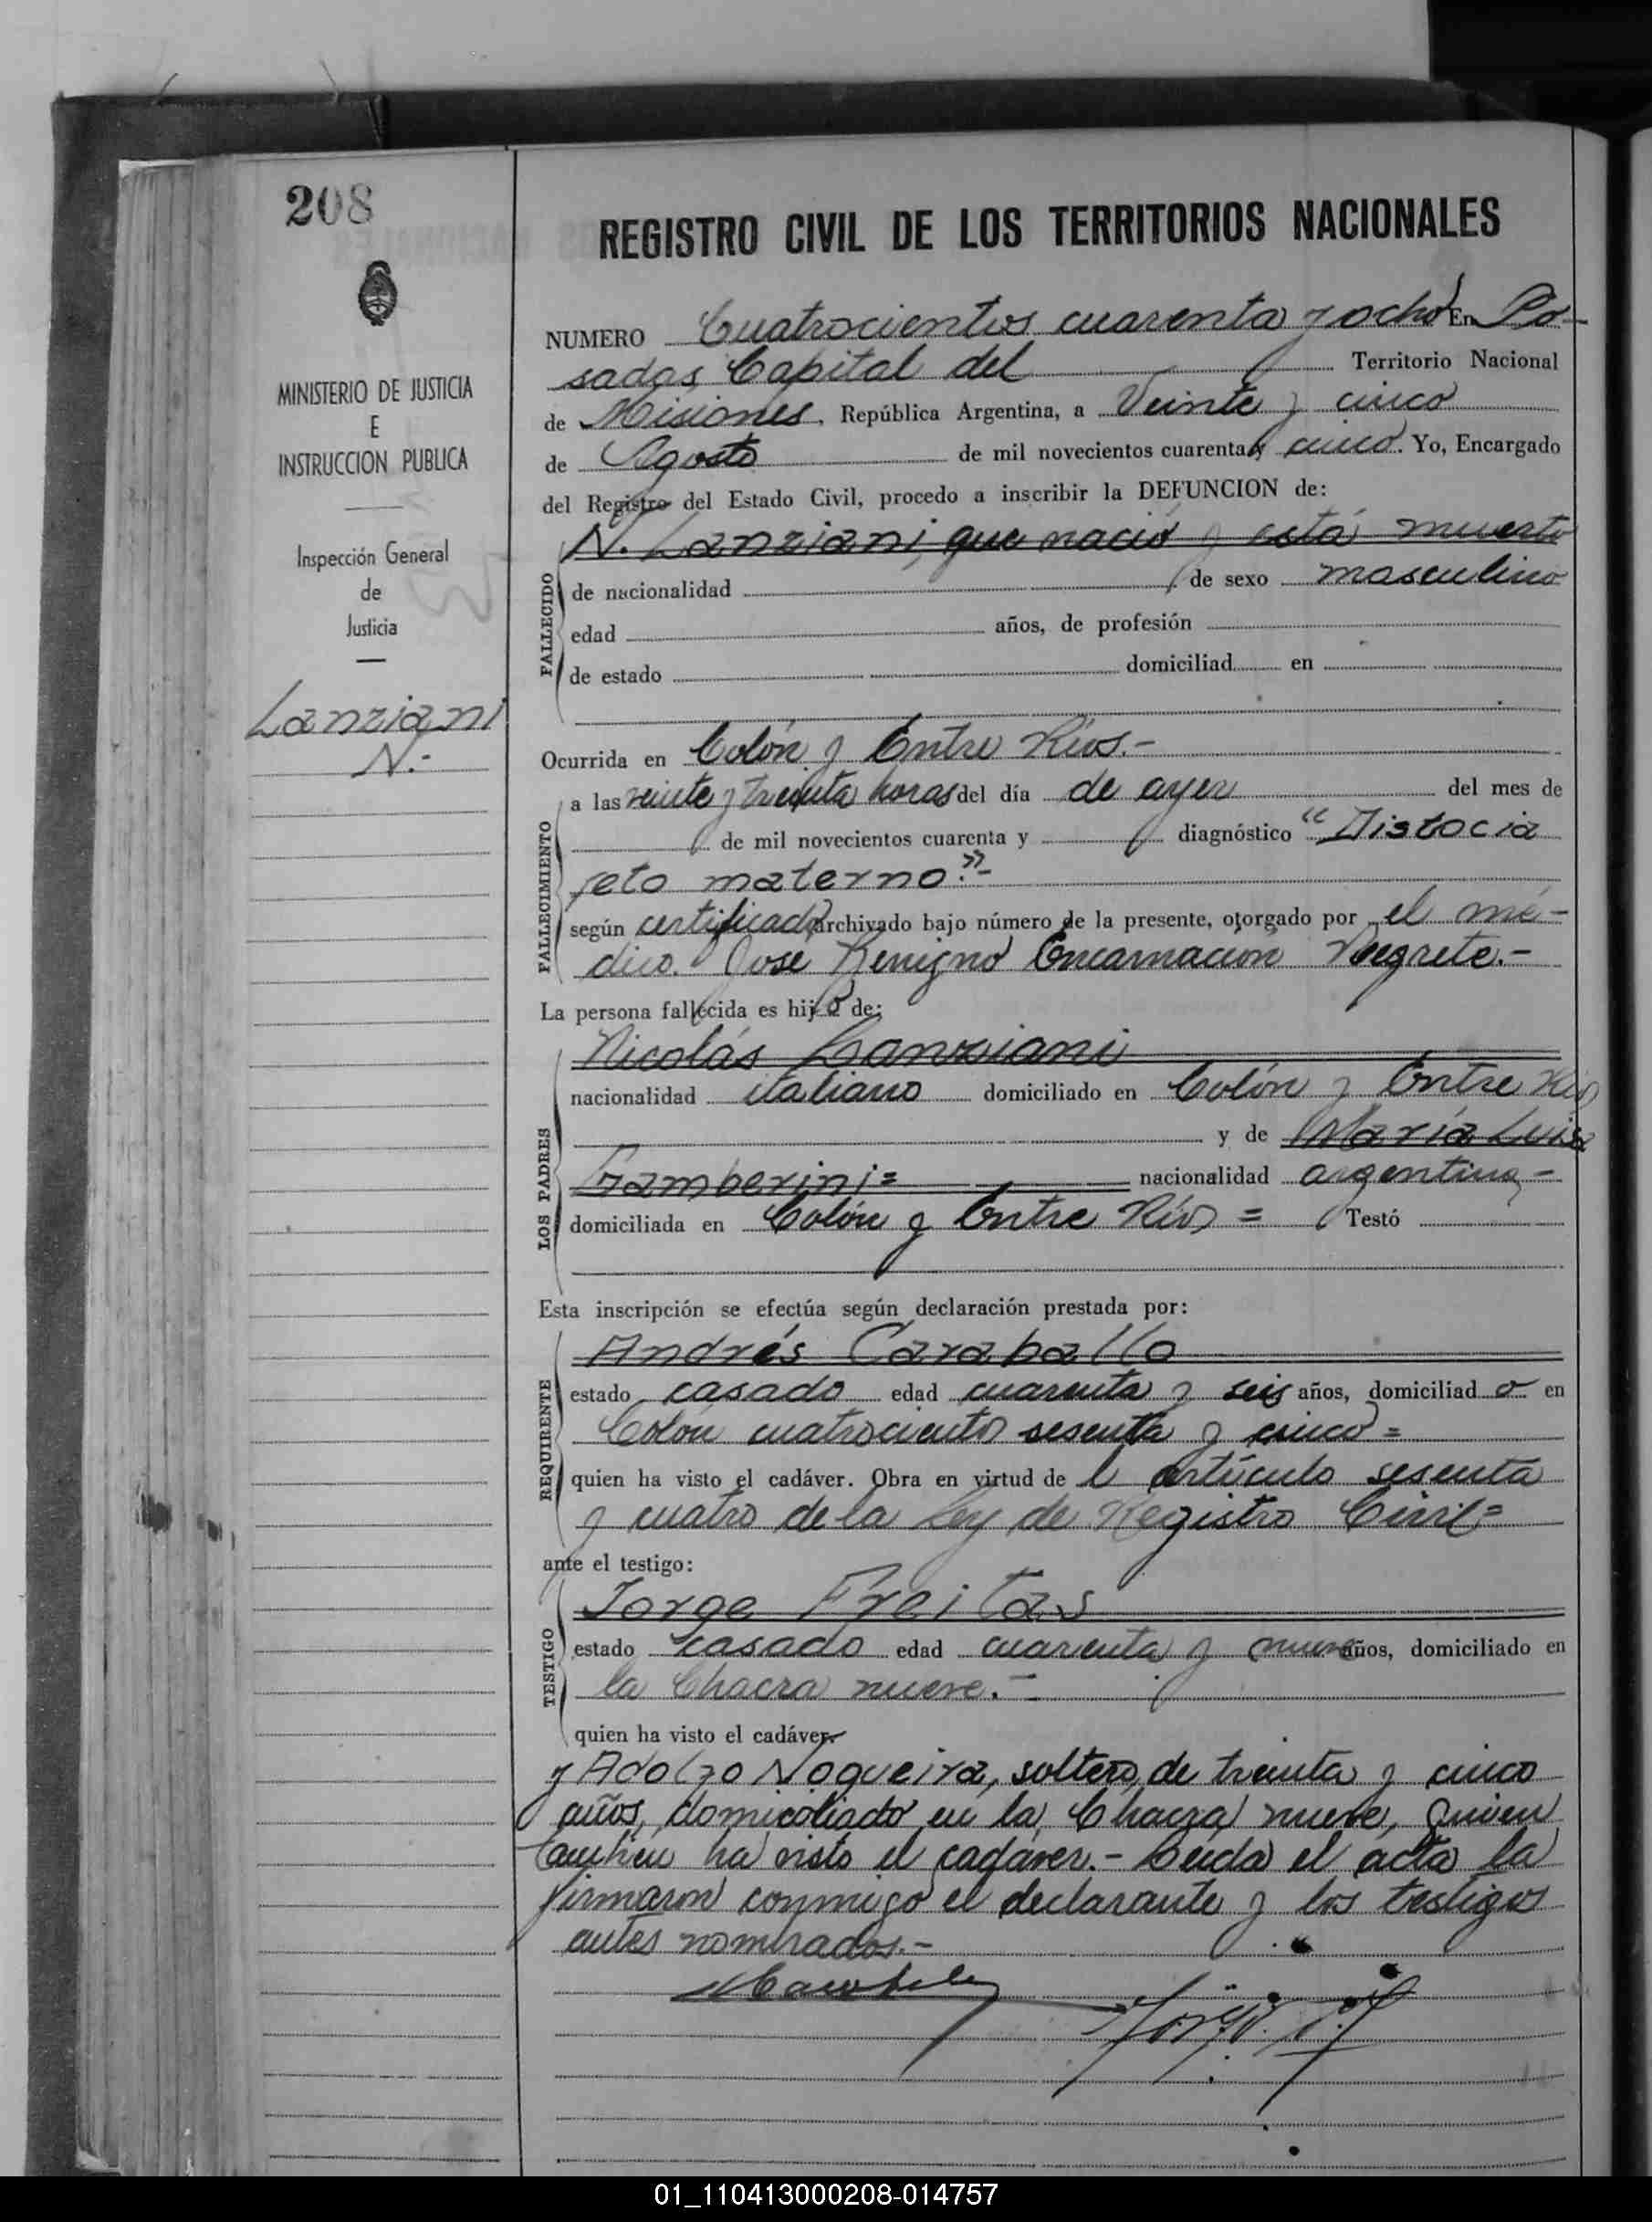 208
MINISTERIO DE JUSTICIA
E
INSTRUCCION PUBLICA
Inspección General
de
Justicia
Lanziani
N.-
REGISTRO CIVIL DE LOS TERRITORIOS NACIONALES
NUMERO Cuatrocientos cuarenta y ocho En Po-
sadas Capital del Territorio Nacional
de Misiones, República Argentina, a Veinte y cinco
de Agosto de mil novecientos cuarenta y cinco. Yo, Encargado
del Registro del Estado Civil, procedo a inscribir la DEFUNCION de:
FALLECIDO
N. Lanziani, que nació y está muerto
de nacionalidad de sexo masculino
edad años, de profesión
de estado domiciliad en
Ocurrida en Colón y Entre Ríos.-
FALLECIMIENTO
a las veinte y treinta horas del día de ayer del mes de
de mil novecientos cuarenta y diagnóstico "Distocia
feto materno".-
según certificado archivado bajo número de la presente, otorgado por el mé-
dico José Benigno Encarnación Negrete.-
La persona fallecida es hijo de:
LOS PADRES
Nicolás Lanziani
nacionalidad italiano domiciliado en Colón y Entre Ríos
y de María Luisa
Gamberini=
nacionalidad argentina,-
domiciliada en Colón y Entre Ríos = Testó
Esta inscripción se efectúa según declaración prestada por:
REQUIRENTE
Andrés Caraballo
estado casado edad cuarenta y seis años, domiciliad o en
Colón cuatrocientos sesenta y cinco =
quien ha visto el cadáver. Obra en virtud de l artículo sesenta
y cuatro de la Ley de Registro Civil=
ante el testigo:
TESTIGO
Jorge Freitas
estado casado edad cuarenta y nueve años, domiciliado en
la Chacra nueve.-
quien ha visto el cadáver
y Adolfo Nogueira, soltero, de treinta y cinco
años, domiciliado en la Chacra nueve, quien
también ha visto el cadáver.- Leída el acta la
firmaron conmigo el declarante y los testigos
antes nombrados.-
01_110413000208-014757